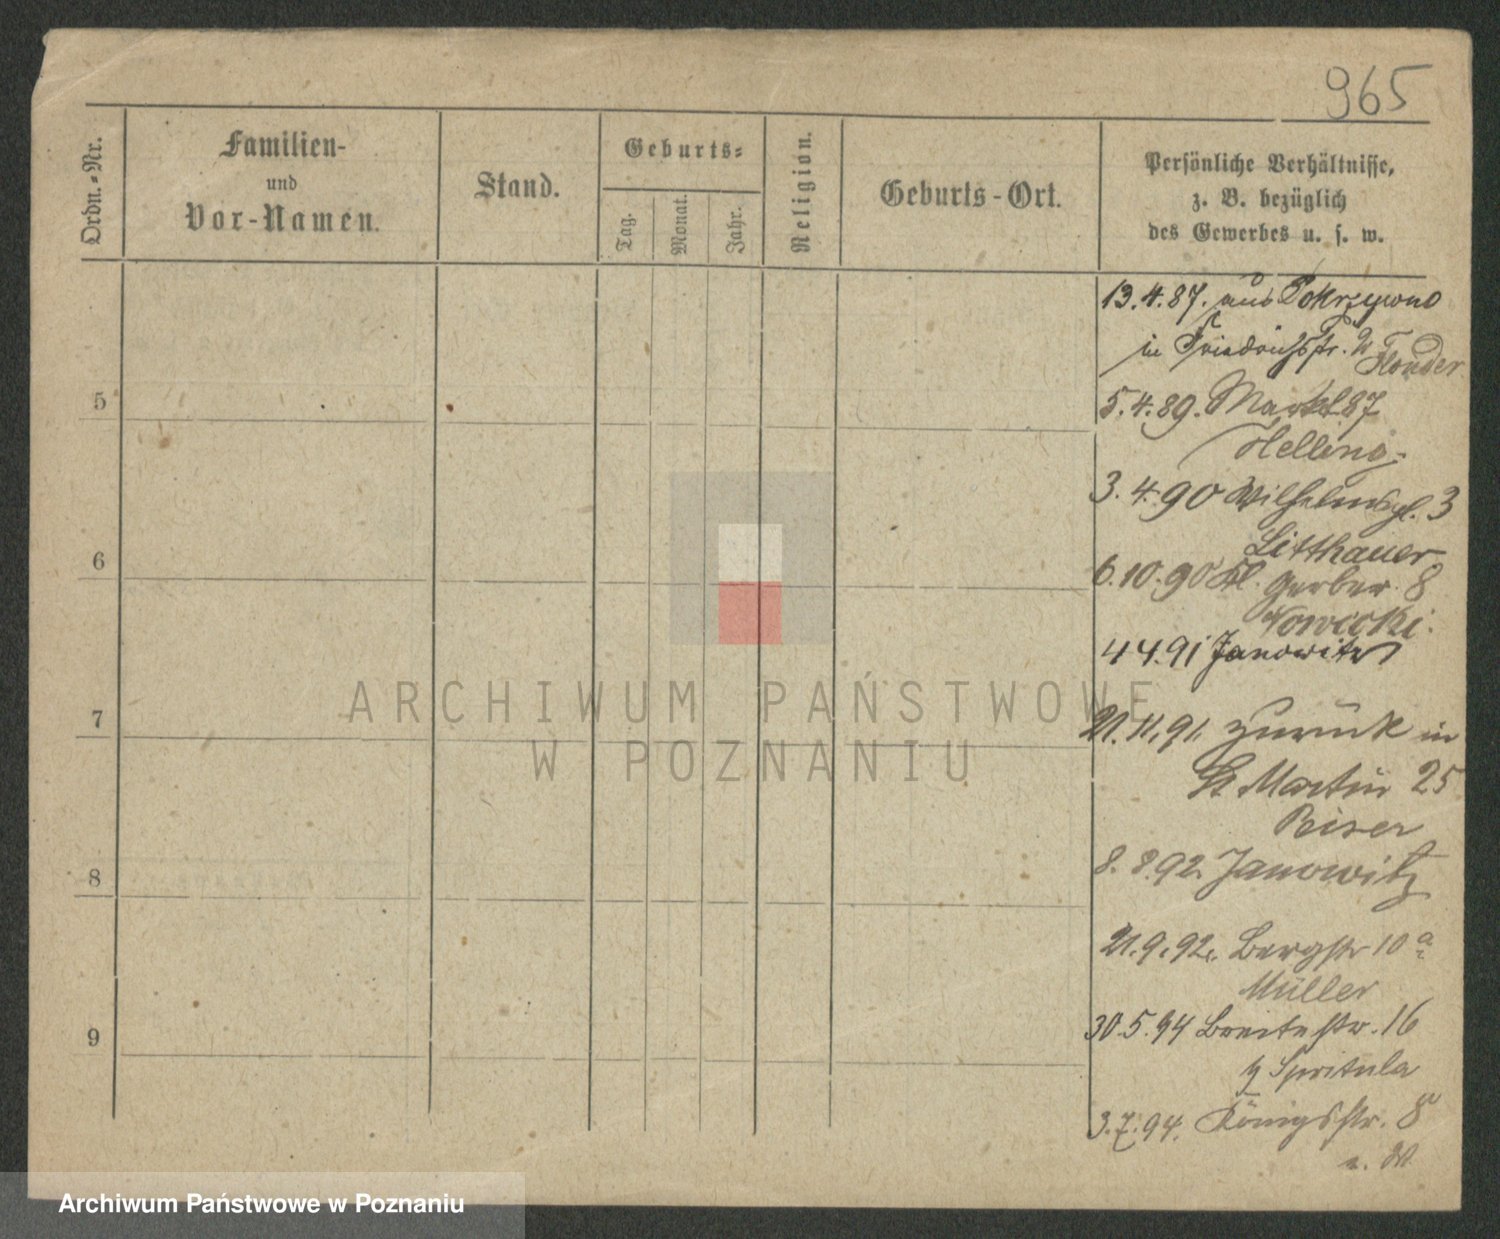 965
Ordn.-Nr.
Familien-
und
Vor-Namen.
Stand.
Geburts-
Tag.
Monat.
Jahr.
Religion.
Geburts-Ort.
Persönliche Verhältnisse,
z. B. bezüglich
des Gewerbes u. s. w.
13.4.87. aus Pokrzywno
in Friedrichstr.
5
5.4.89. Markt 87
Helling
3.4.90 Wilhelmspl. 3
Litthauer
6
6.10.90 Kl. Gerber. 8
Nowicki
4 4.91 Janowitz
7
21.11.91. zurück in
St Martin 25
Beiser
8
8.8.92. Janowitz
21.9.92. Bergstr 10 a
Müller
9
30.5.94 Breitestr. 16
Spritula
3.7.94. Königsstr. 8
ARCHIWUM PAŃSTWOWE
W POZNANIU
Archiwum Państwowe w Poznaniu